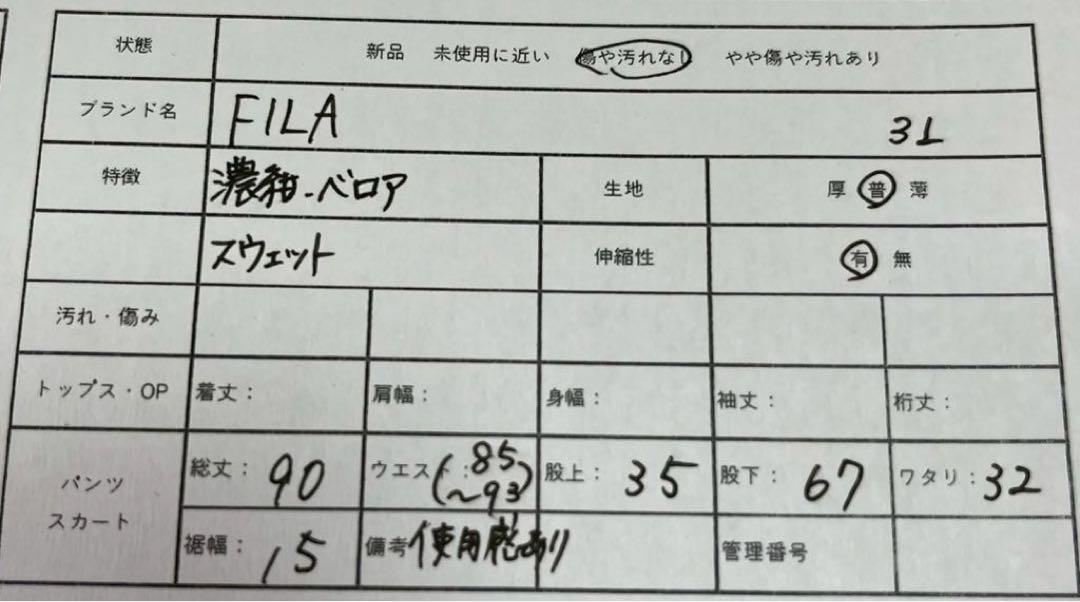 状態 新品 未使用に近い 傷や汚れなし やや傷や汚れあり
ブランド名 FILA 31
特徴 濃紺-ベロア 生地 厚 普 薄
スウェット 伸縮性 有 無
汚れ・傷み
トップス・OP 着丈: 肩幅: 身幅: 袖丈: 裄丈:
パンツ スカート 総丈: 90 ウエスト: 85 (〜93) 股上: 35 股下: 67 ワタリ: 32
裾幅: 15 備考 使用感あり 管理番号